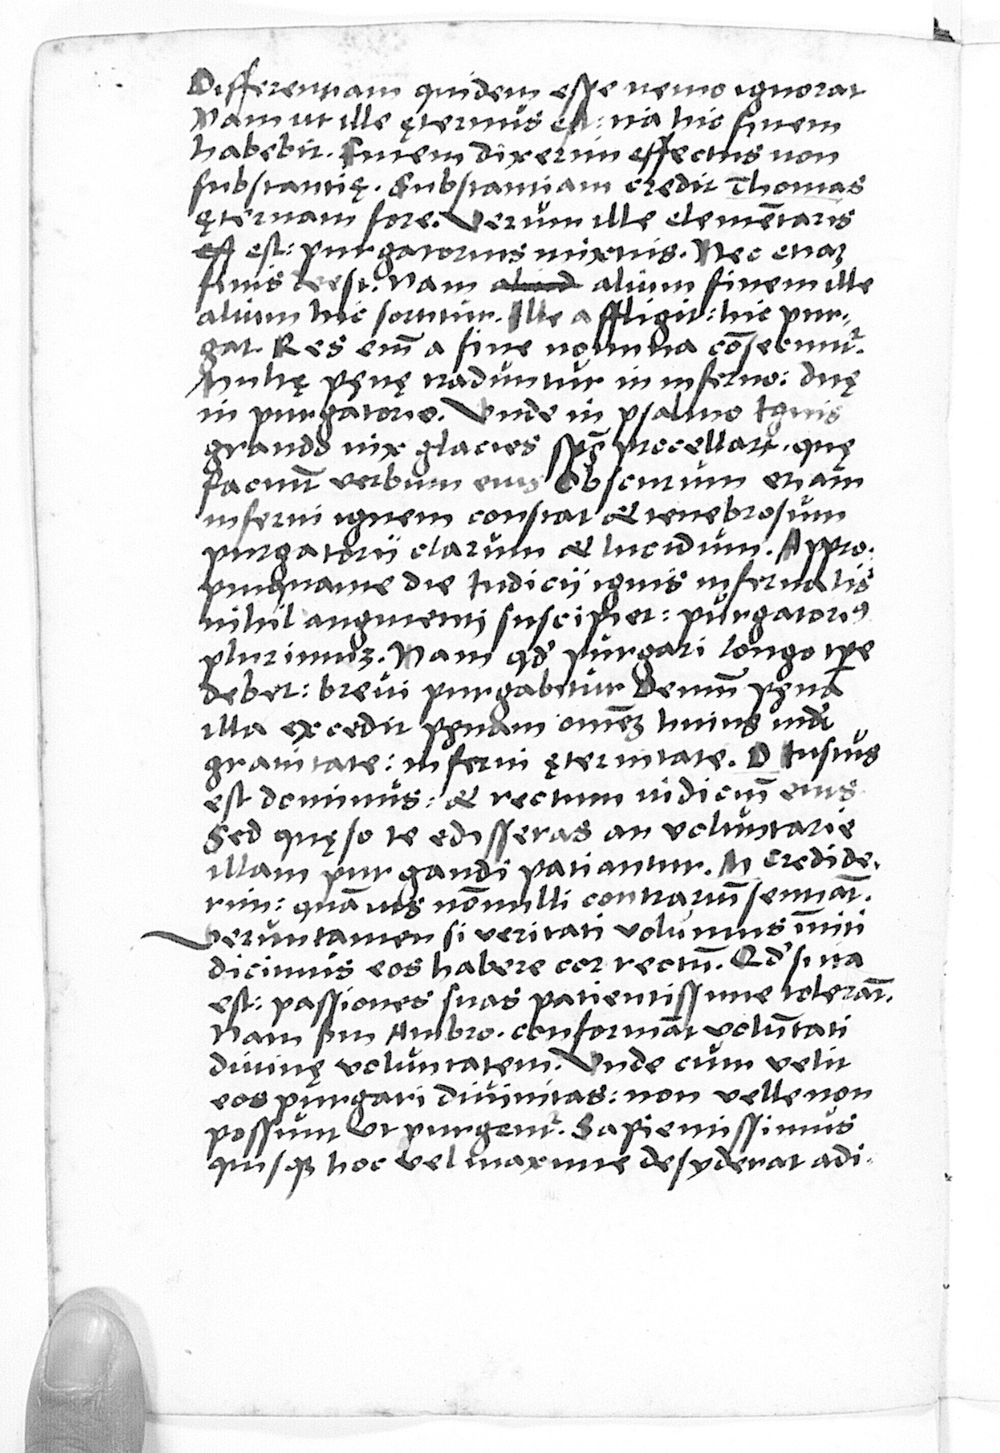 Differentiam quidem esse nemo ignorat
Nam ut ille ęternus est: ita hic finem
habebit. Finem dixerim effectus non
substantię. Substantiam credit Thomas
ęternam fore. Verum ille elemētaris
est: purgatorius mixtus. Nec etiaꝫ
finis deest. Nam aliud alium finem ille
alium hic sortitur. Ille affligit: hic pur-
gat. Res em̄ a fine nomina cōsecunt̃.
Multę pęnę traduntur in inferno: duę
in purgatorio. Vnde in psalmo Ignis
grando nix glacies sp̄s procellarꝫ. quę
faciūt verbum eius Obscurum etiam
inferni ignem constat & tenebrosum
purgatorij clarum & lucidum. Appro-
pinquante die Iudicij ignis infernalis
nihil augmenti suscipiet: purgatoriꝰ
plurimuꝫ. Nam qd̃ purgari longo tp̄e
debet: brevi purgabitur Demū pęna
illa excedit pęnam omēꝫ huius mūdi
gravitate: inferni ęternitate. D Iustus
est dominus: & rectum iudiciū eius
Sed quęso te edisseras an voluntarie
illam purgandi patiantur. M Credide-
rim: quāvis nōnulli contrariū sentiāt.
Veruntamen si veritati volumus īniti
dicimus eos habere cor rectū. Qd̃ si ita
est: passiones suas patientissime tolerāt.
Nam sm̄ Ambro. conformāt volūtati
divinę voluntatem. Vnde cum velit
eos purgari divinitas: non velle non
possunt ut purgent̃. Sapientissimus
quisqꝫ hoc vel maxime desyderat adi-